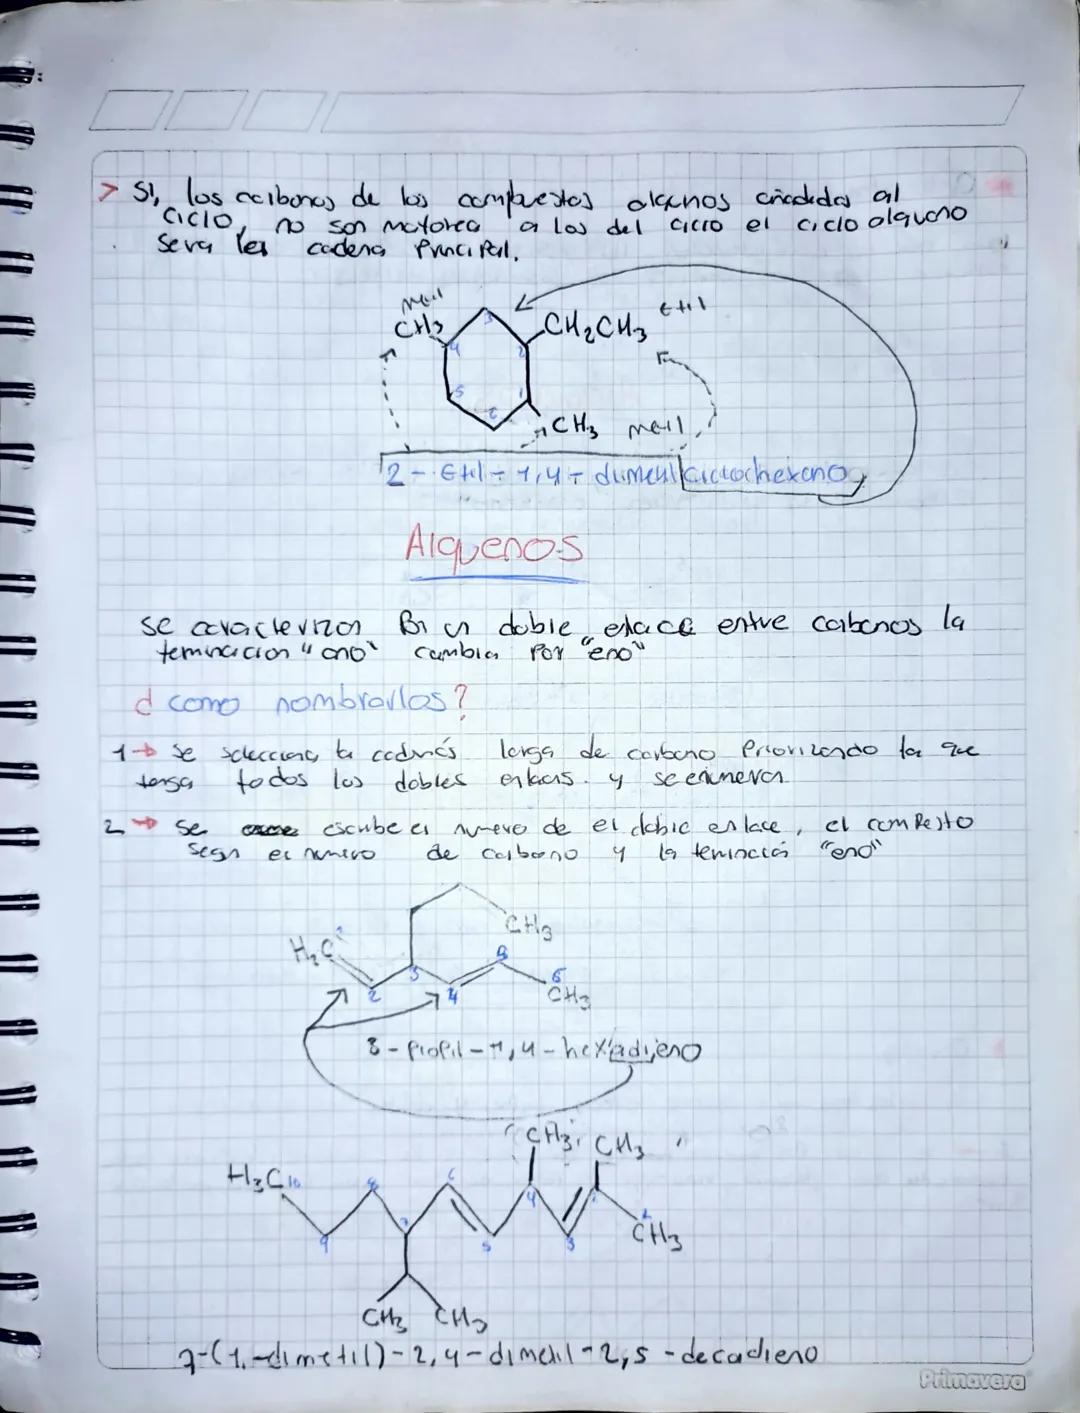 > Si, los carbonos de los compuestos alcanos añadidos al
ciclo, no son mayores a los del ciclo el ciclo alquano
seva la cadena Principal.
metil
CH3
3
CH2CH3
Etil
4
2
5
1
6
CH3
metil
2 - Etil - 1,4 - dimetil ciclohexano
Alquenos
se caracterizan doble enlace entre carbonos la
terminacion "ano" cambia Por "eno"
¿como nombrarlos?
1→ Se selecciona la cadmás larga de carbono Priorizando la que
tenga todos los dobles enlaces. y se enumeran
2→ Se escribe el numero de el doble enlace, el compesto
segn el numero de carbono y la terminación "eno"
CH3
H2C 1
5
3
6
2
4
CH3
3 - Propil - 1,4 - hexadieno
CH3
CH3
H3C 10
8
6
4
2
7
1
CH3
9
5
3
CH3
CH3
7-(1,-dimetil)-2,4-dimetil-2,5-decadieno
Primavera